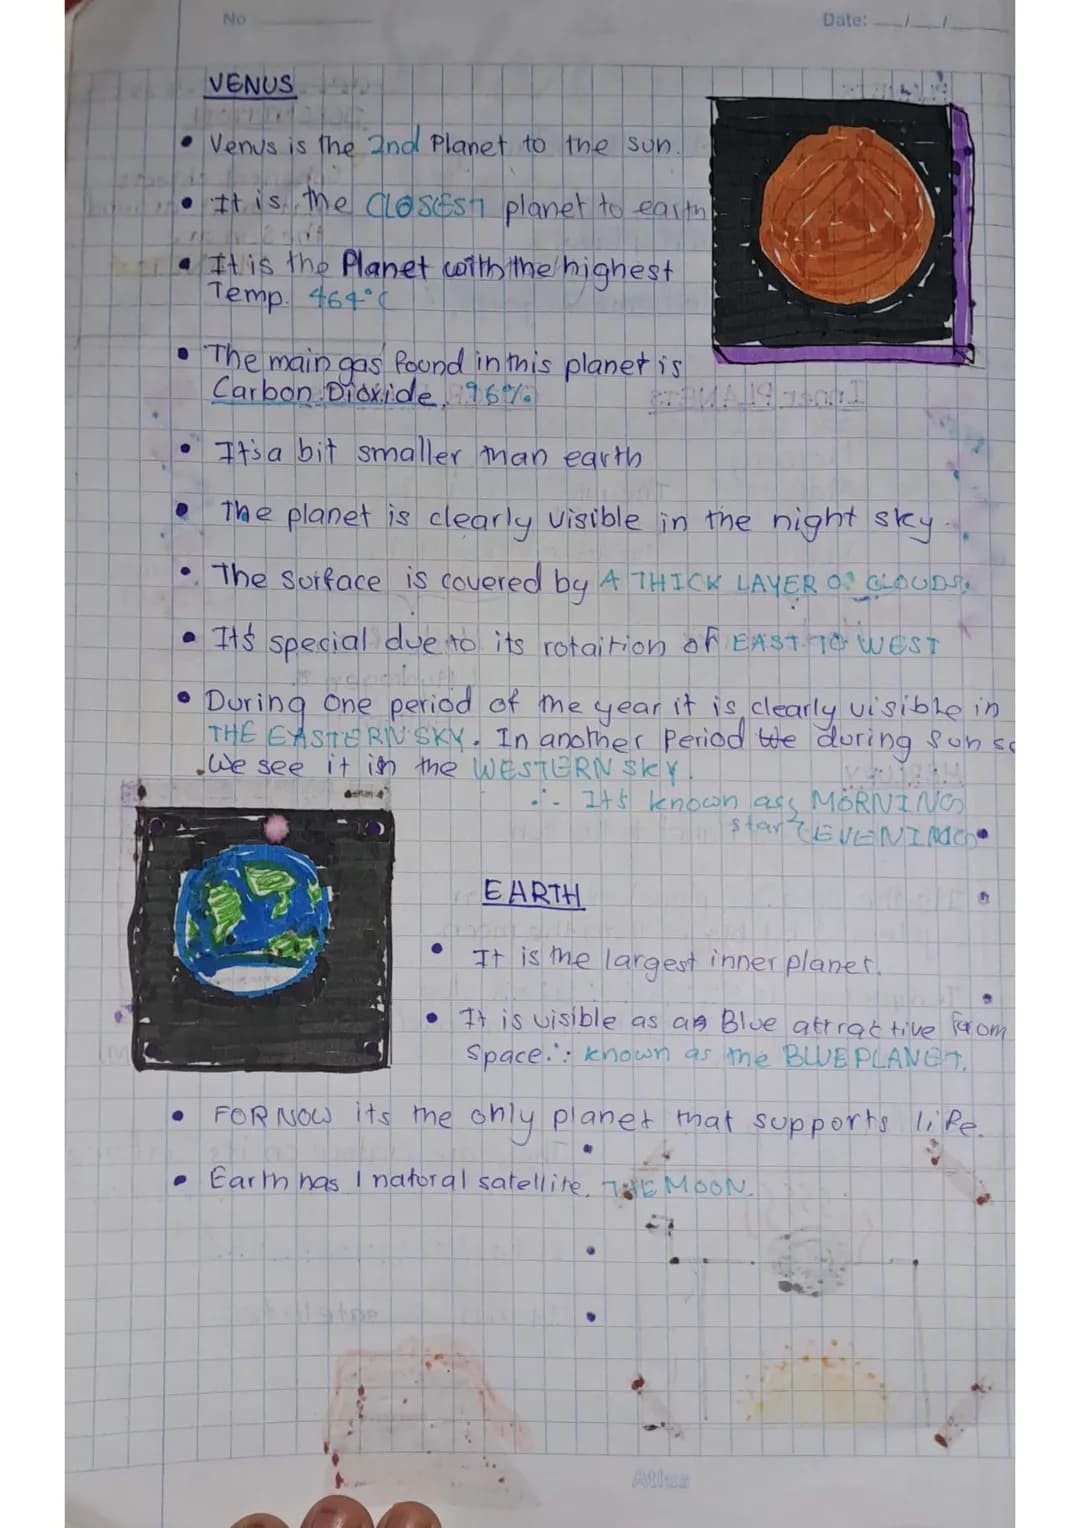 No
Date:
VENUS
• Venus is the 2nd Planet to the sun.
• It is the CLOSEST planet to earth
• It is the Planet with the highest
Temp. 464°C
• The main gas found in this planet is
Carbon Dioxide, 96%
• Its a bit smaller than earth
• The planet is clearly visible in the night sky.
• The surface is covered by A THICK LAYER OF CLOUDS.
• Its special due to its rotaition of EAST TO WEST
• During one period of the year it is clearly visible in
THE EASTERN SKY. In another Period during sun
We see it in the WESTERN SKY.
∴ Its known ass MORNING
star EVENING
EARTH
• It is the largest inner planet.
• It is visible as a Blue attractive from
Space. ∴ known as the BLUE PLANET.
• FOR NOW its the only planet that supports life.
• Earth has 1 natural satellite, THE MOON.
Atlas